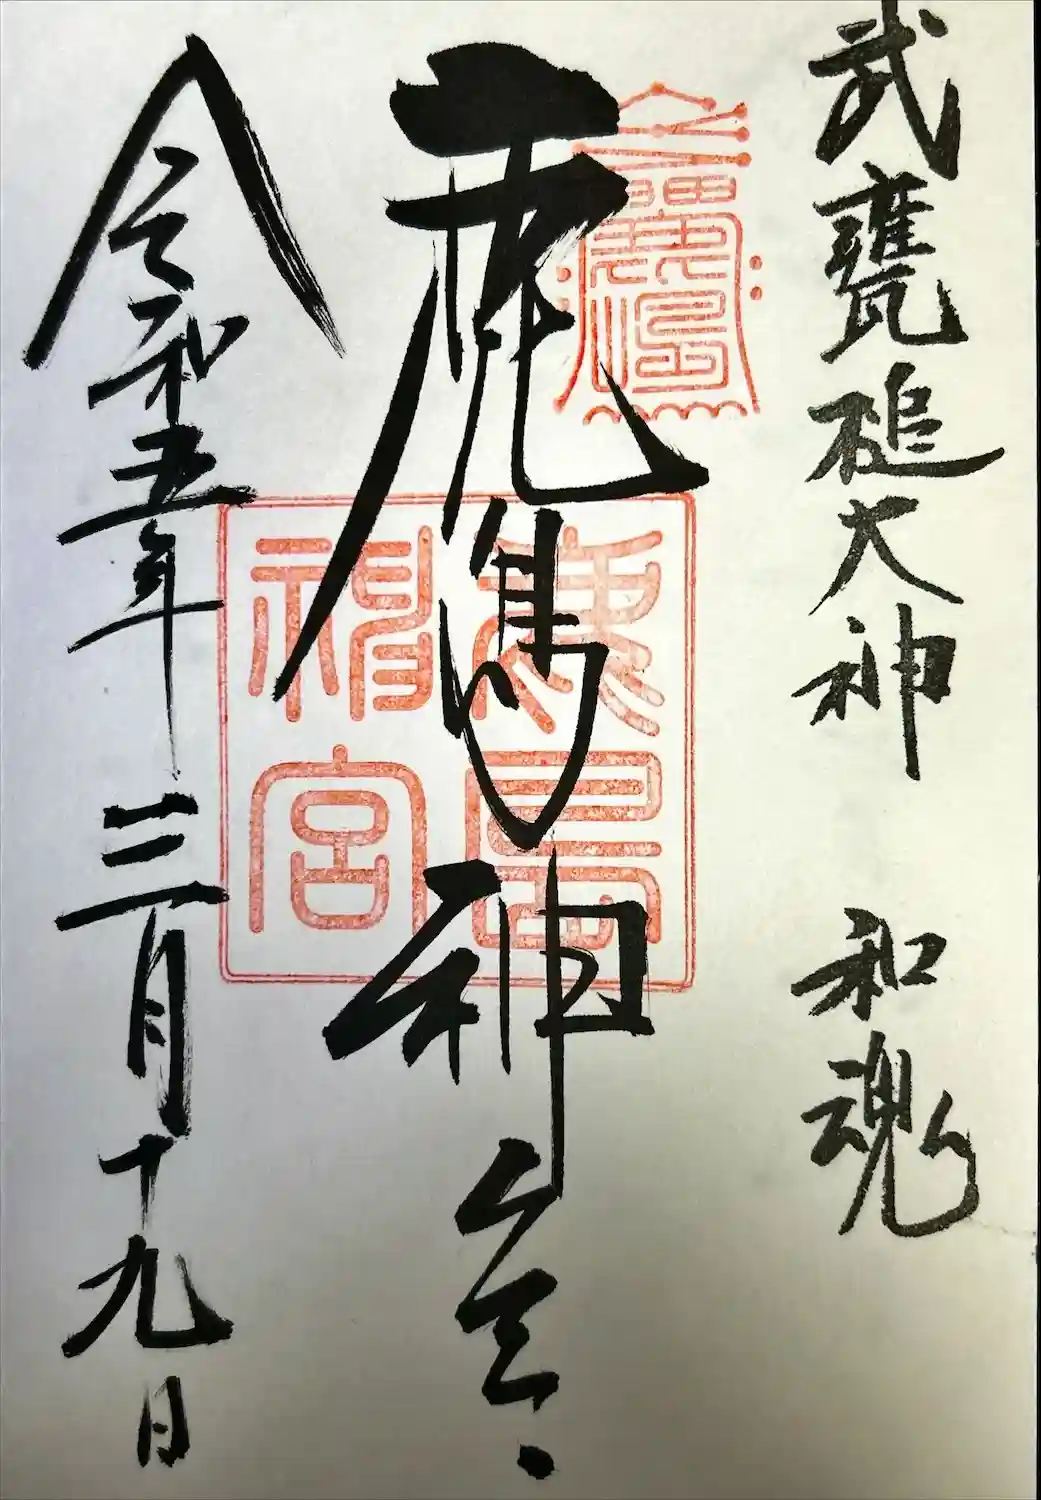 武甕槌大神 和魂
鹿島神宮
鹿島
神宮
令和五年三月十九日